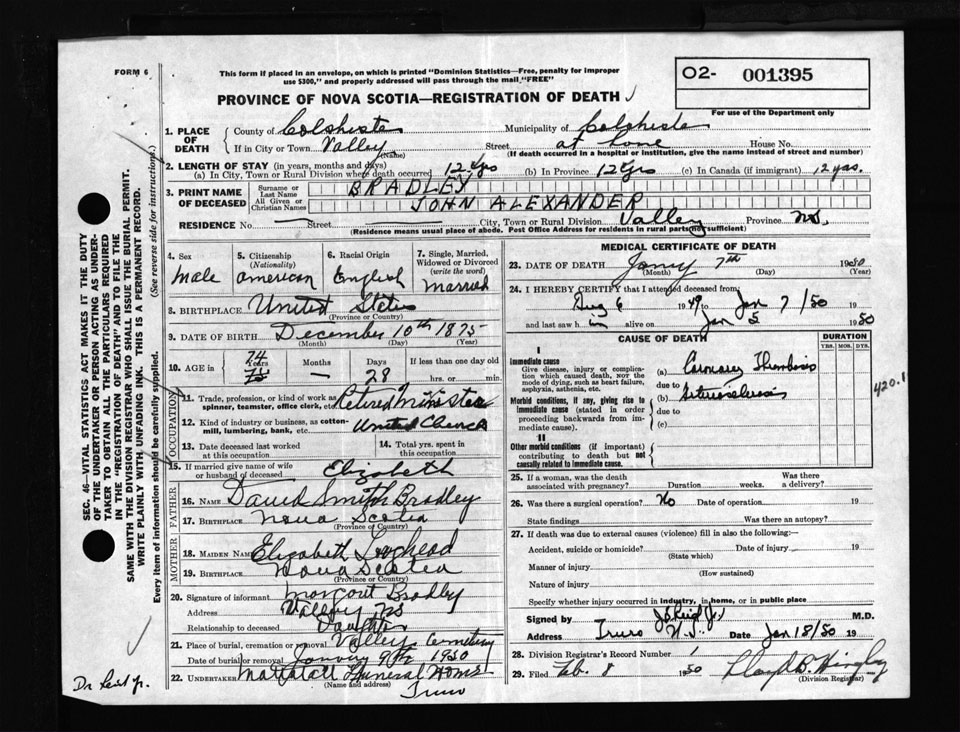 FORM 6
This form if placed in an envelope, on which is printed "Dominion Statistics—Free, penalty for improper
use $300," and properly addressed will pass through the mail "FREE"
O2- 001395
For use of the Department only
PROVINCE OF NOVA SCOTIA—REGISTRATION OF DEATH
1. PLACE OF DEATH
County of Colchester Municipality of Colchester
If in City or Town Valley Street at home House No.
(Name) (If death occurred in a hospital or institution, give the name instead of street and number)
2. LENGTH OF STAY (in years, months and days)
(a) In City, Town or Rural Division where death occurred 12 yrs (b) In Province 12 yrs (c) In Canada (if immigrant) 12 yrs.
3. PRINT NAME OF DECEASED
Surname or Last Name BRADLEY
All Given or Christian Names JOHN ALEXANDER
RESIDENCE No. — Street — City, Town or Rural Division Valley Province N.S.
(Residence means usual place of abode. Post Office Address for residents in rural parts not sufficient)
4. Sex
male
5. Citizenship
(Nationality)
American
6. Racial Origin
English
7. Single, Married,
Widowed or Divorced
(write the word)
Married
8. BIRTHPLACE United States
(Province or Country)
9. DATE OF BIRTH December 10th 1875
(Month) (Day) (Year)
10. AGE in
74
Years
75
Months
—
Days
28
If less than one day old
hrs. or min.
OCCUPATION
11. Trade, profession, or kind of work as
spinner, teamster, office clerk, etc. Retired Minister
12. Kind of industry or business, as cotton-
mill, lumbering, bank, etc. United Church
13. Date deceased last worked
at this occupation
14. Total yrs. spent in
this occupation
15. If married give name of wife
or husband of deceased Elizabeth
FATHER
16. NAME David Smith Bradley
17. BIRTHPLACE Nova Scotia
(Province or Country)
MOTHER
18. MAIDEN NAME Elizabeth
19. BIRTHPLACE Nova Scotia
(Province or Country)
20. Signature of informant Margaret Bradley
Address Valley NS
Relationship to deceased Daughter
21. Place of burial, cremation or removal Valley Cemetery
Date of burial or removal January 9th 1950
22. UNDERTAKER Mattatall Funeral Home
(Name and address)
Truro
MEDICAL CERTIFICATE OF DEATH
23. DATE OF DEATH 7th 1950
(Month) (Day) (Year)
24. I HEREBY CERTIFY that I attended deceased from:
Aug 6 1949 to Jan 7/50 19
and last saw him alive on Jan 5 1950
CAUSE OF DEATH
DURATION
YRS. MOS. DYS.
I
Immediate cause
Give disease, injury or complica-
tion which caused death, not the
mode of dying, such as heart failure,
asphyxia, asthenia, etc.
(a) Coronary Thrombosis
due to
Morbid conditions, if any, giving rise to
immediate cause (stated in order
proceeding backwards from im-
mediate cause).
(b) Arteriosclerosis
due to
(c)
420.1
II
Other morbid conditions (if important)
contributing to death but not
causally related to immediate cause.
25. If a woman, was the death
associated with pregnancy? Duration weeks. Was there
a delivery?
26. Was there a surgical operation? No Date of operation 19
State findings Was there an autopsy?
27. If death was due to external causes (violence) fill in also the following:—
Accident, suicide or homicide? Date of injury 19
(State which)
Manner of injury
(How sustained)
Nature of injury
Specify whether injury occurred in industry, in home, or in public place
Signed by J S Reid Jr. M.D.
Address Truro N.S. Date Jan 18/50 19
28. Division Registrar's Record Number 1
29. Filed Feb. 8 1950 Lloyd B.
(Division Registrar)
SEC. 46—VITAL STATISTICS ACT MAKES IT THE DUTY
OF THE UNDERTAKER OR PERSON ACTING AS UNDER-
TAKER TO OBTAIN ALL THE PARTICULARS REQUIRED
IN THE "REGISTRATION OF DEATH" AND TO FILE THE
SAME WITH THE DIVISION REGISTRAR WHO SHALL ISSUE THE BURIAL PERMIT.
WRITE PLAINLY WITH UNFADING INK. THIS IS A PERMANENT RECORD.
Every item of information should be carefully supplied. (See reverse side for instructions.)
Dr Reid Jr.